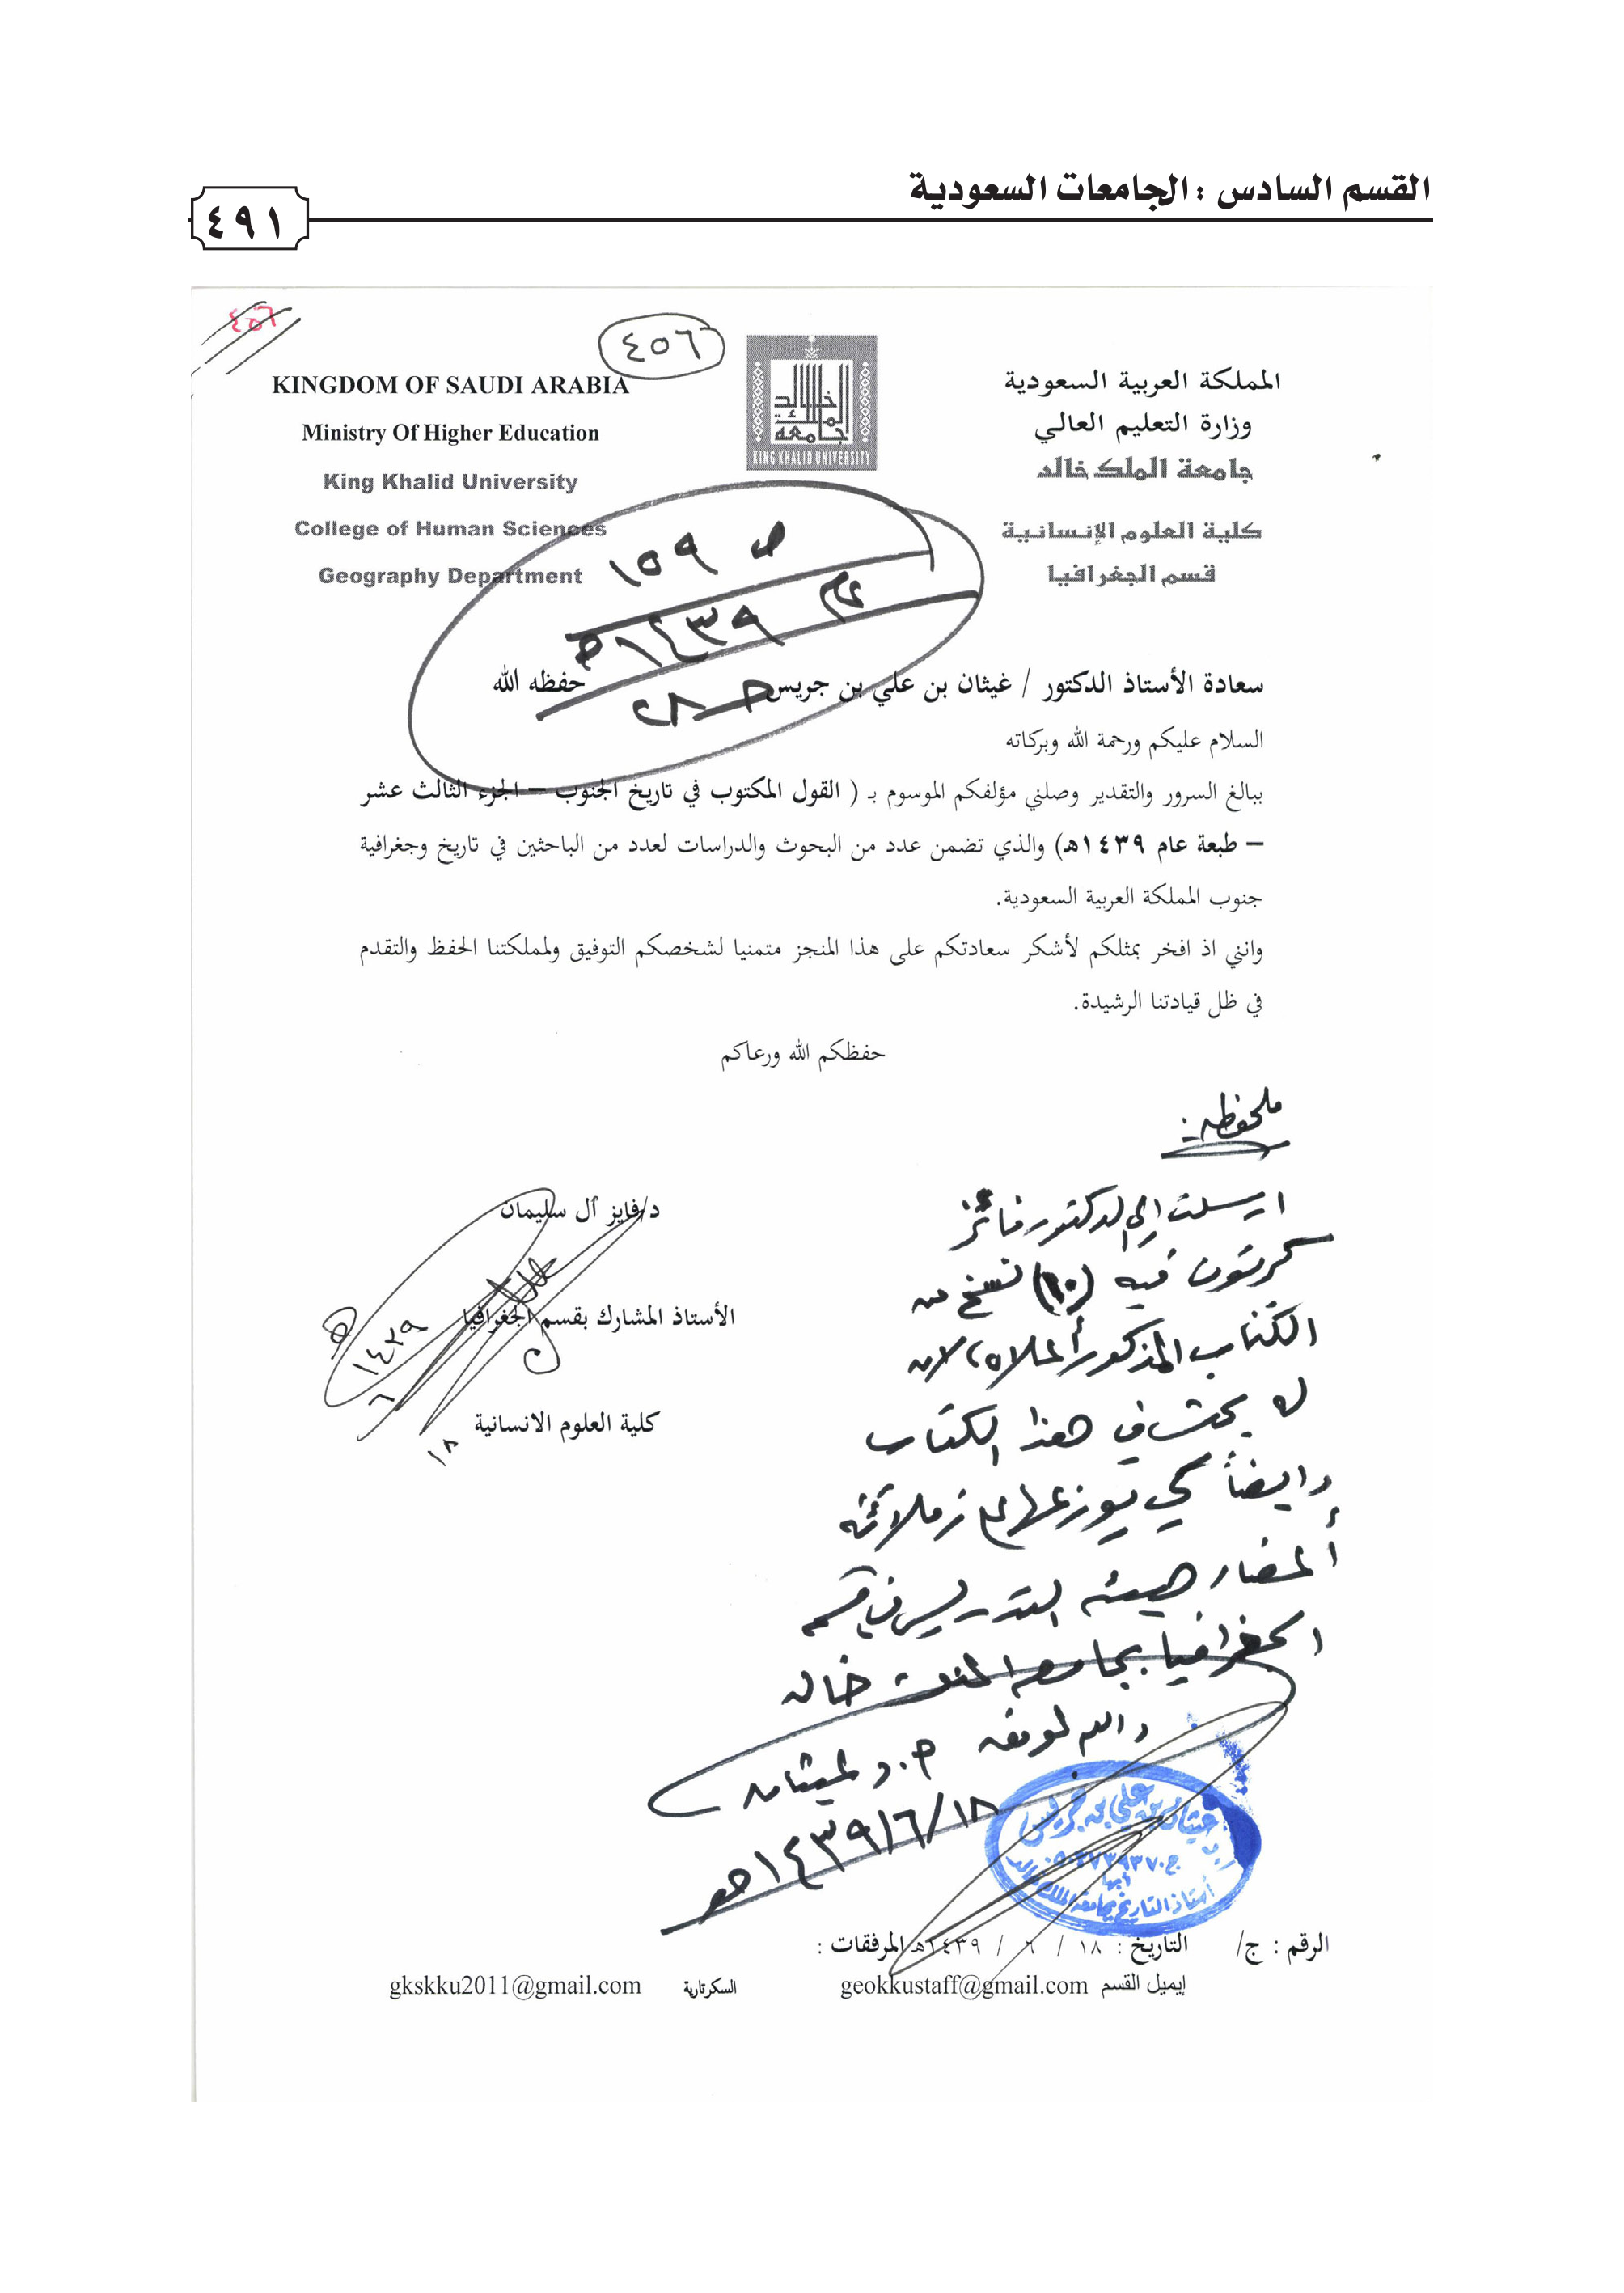 القسم السادس : الجامعات السعودية
٤٩١
٤٥٦
٤٥٦
KINGDOM OF SAUDI ARABIA
Ministry Of Higher Education
King Khalid University
College of Human Sciences
Geography Department
جامعة الملك خالد
KING KHALID UNIVERSITY
المملكة العربية السعودية
وزارة التعليم العالي
جامعة الملك خالد
كلية العلوم الإنسانية
قسم الجغرافيا
ص ١٥٩
عام ١٤٣٩هـ
سعادة الأستاذ الدكتور / غيثان بن علي بن جريس حفظه الله
السلام عليكم ورحمة الله وبركاته
ببالغ السرور والتقدير وصلني مؤلفكم الموسوم بـ ( القول المكتوب في تاريخ الجنوب – الجزء الثالث عشر
– طبعة عام ١٤٣٩هـ) والذي تضمن عدد من البحوث والدراسات لعدد من الباحثين في تاريخ وجغرافية
جنوب المملكة العربية السعودية.
وانني اذ افخر بمثلكم لأشكر سعادتكم على هذا المنجز متمنيا لشخصكم التوفيق ولمملكتنا الحفظ والتقدم
في ظل قيادتنا الرشيدة.
حفظكم الله ورعاكم
د/فايز آل سليمان
الأستاذ المشارك بقسم الجغرافيا
كلية العلوم الانسانية
١٨ ٦ ١٤٣٩هـ
ملحوظة:
ارسلت إلى الدكتور فائز
كرتون فيه (١٠) نسخ من
الكتاب المذكور أعلاه، لان
له بحث في هذا الكتاب
وايضاً كي يوزعها على زملائه
أعضاء هيئة التدريس في قسم
الجغرافيا بجامعة الملك خالد
والله الموفق أ.د غيثان
١٤٣٩/٦/١٨هـ
أ.د غيثان بن علي بن جريس
أبها
أستاذ التاريخ بجامعة الملك خالد
الرقم : ج/ التاريخ : ١٨ / ٦ / ١٤٣٩هـ المرفقات :
إيميل القسم geokkustaff@gmail.com السكرتارية gkskku2011@gmail.com